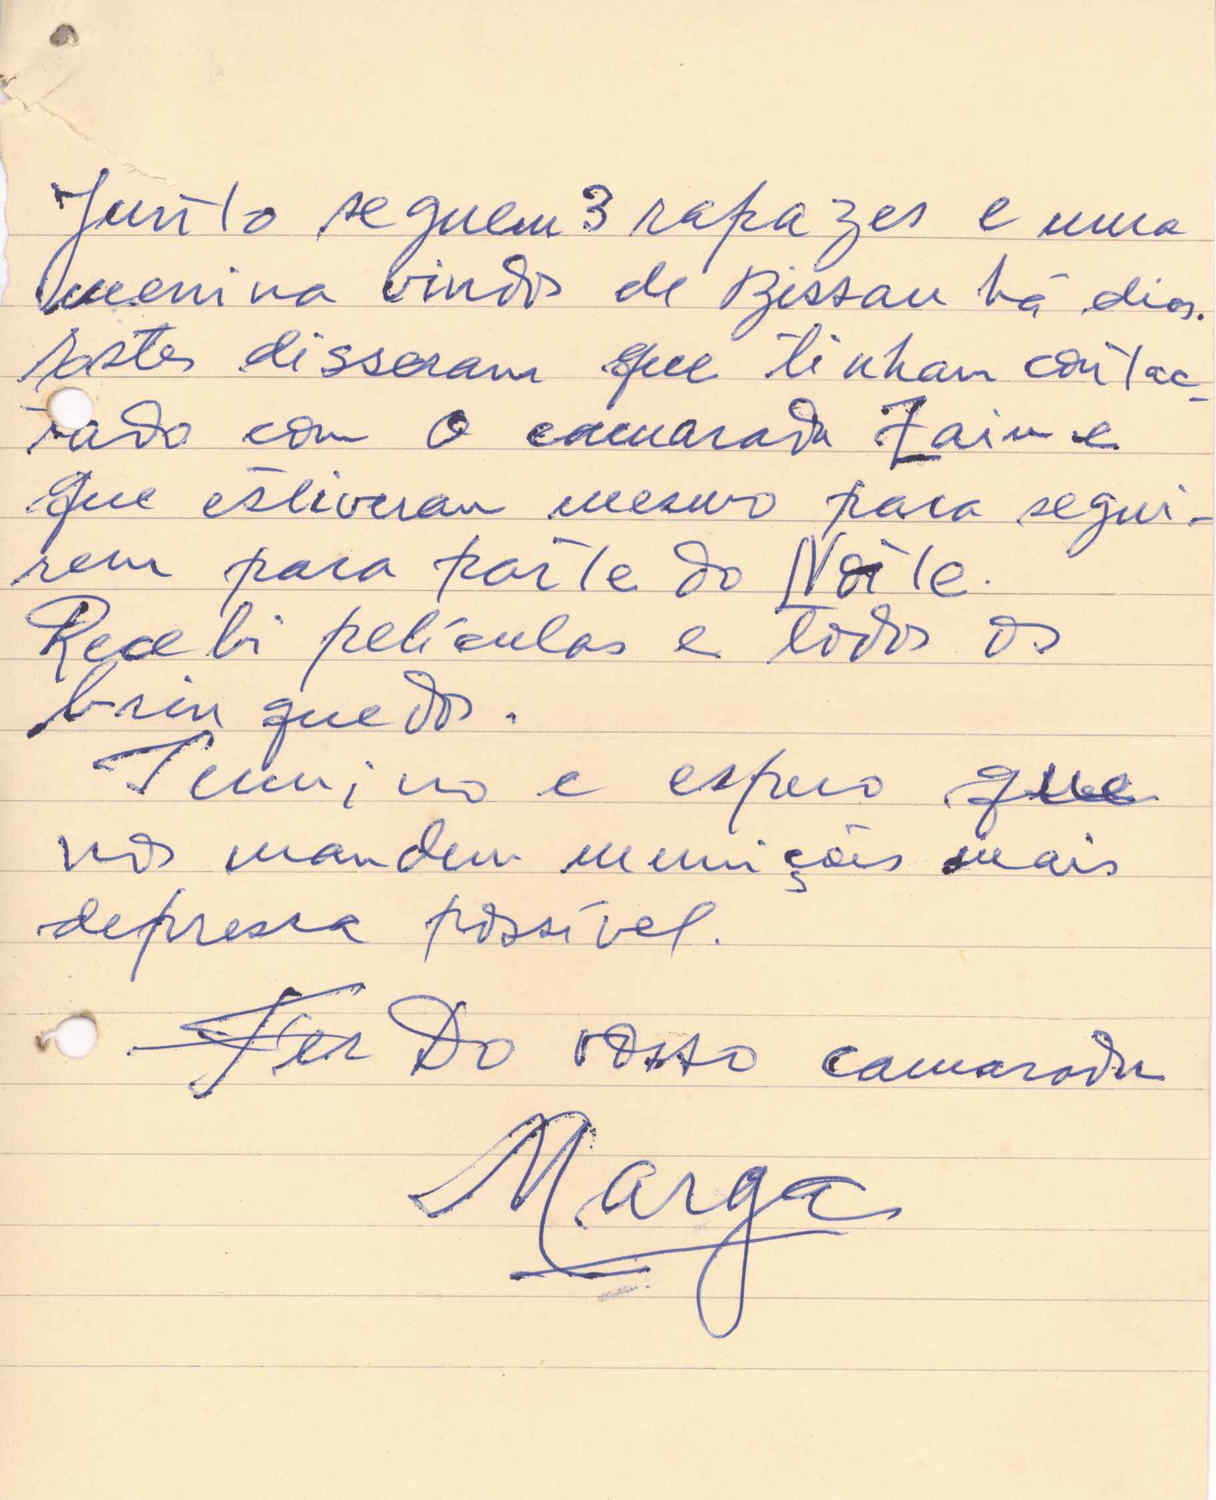 Junto seguem 3 rapazes e uma
menina vindos de Bissau há dias.
Estes disseram que tinham contac-
tado com o camarada Zaime
que estiveram mesmo para segui-
rem para parte do Norte.
Recebi películas e todos os
brinquedos.
Termino e espero que
nos mandem munições mais
depressa possível.
Do vosso camarada
Marga